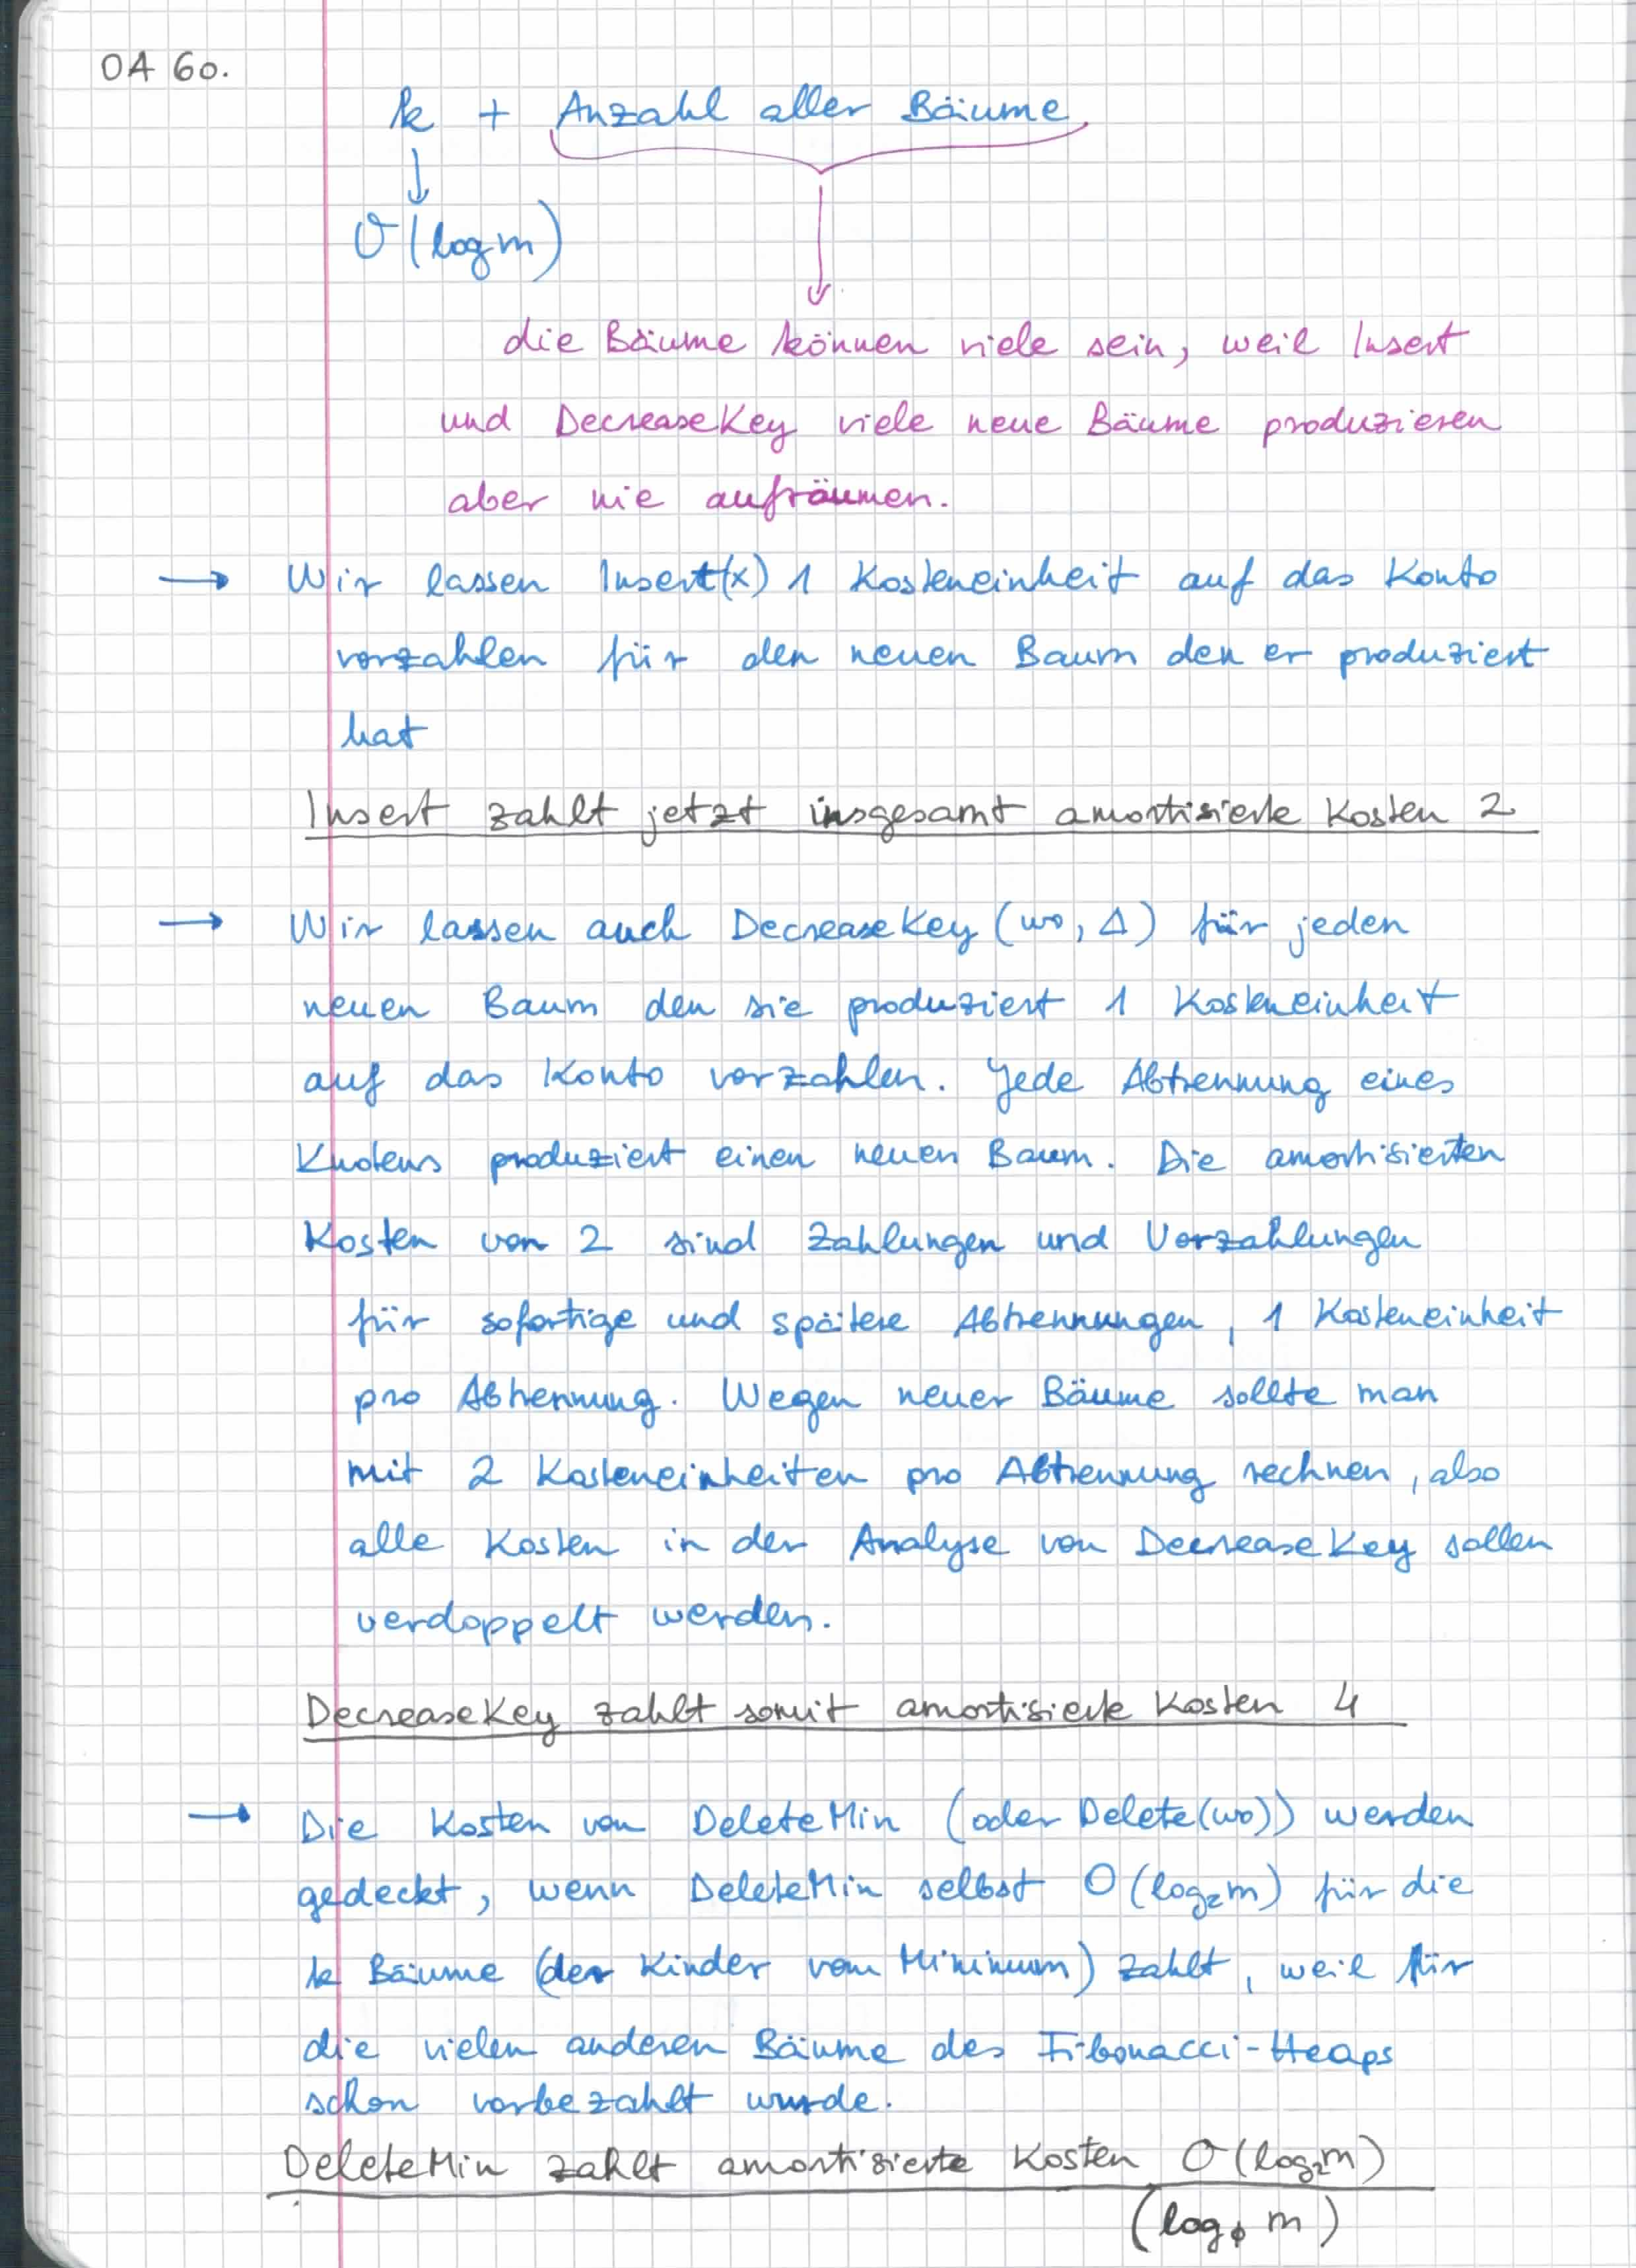 OA 60.
k + Anzahl aller Bäume
↓
O(log m)
die Bäume können viele sein, weil Insert
und DecreaseKey viele neue Bäume produzieren
aber nie aufräumen.
→ Wir lassen Insert(x) 1 Kosteneinheit auf das Konto
vorzahlen für den neuen Baum den er produziert
hat
Insert zahlt jetzt insgesamt amortisierte Kosten 2
→ Wir lassen auch DecreaseKey (wo, Δ) für jeden
neuen Baum den sie produziert 1 Kosteneinheit
auf das Konto vorzahlen. Jede Abtrennung eines
Knotens produziert einen neuen Baum. Die amortisierten
Kosten von 2 sind Zahlungen und Vorzahlungen
für sofortige und spätere Abtrennungen, 1 Kosteneinheit
pro Abtrennung. Wegen neuer Bäume sollte man
mit 2 Kosteneinheiten pro Abtrennung rechnen, also
alle Kosten in der Analyse von DecreaseKey sollen
verdoppelt werden.
DecreaseKey zahlt somit amortisierte Kosten 4
→ Die Kosten von DeleteMin (oder Delete(wo)) werden
gedeckt, wenn DeleteMin selbst O(log₂m) für die
k Bäume (der Kinder vom Minimum) zahlt, weil für
die vielen anderen Bäume des Fibonacci-Heaps
schon vorbezahlt wurde.
DeleteMin zahlt amortisierte Kosten O(log₂m)
(log_ϕ m)